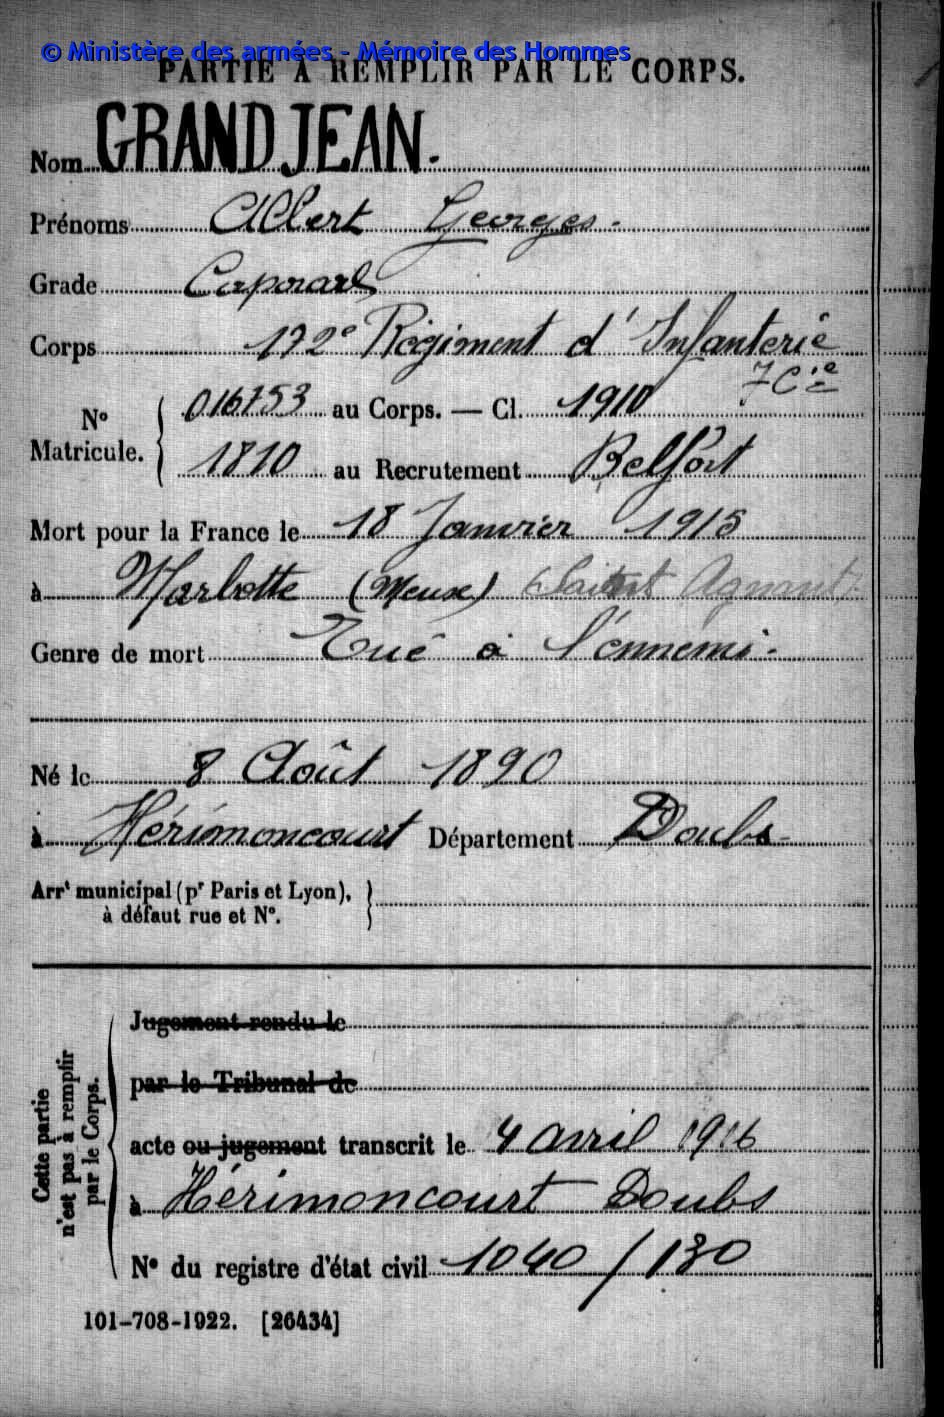 © Ministère des armées - Mémoire des Hommes
PARTIE À REMPLIR PAR LE CORPS.
Nom GRANDJEAN.
Prénoms Albert Georges-
Grade Caporal
Corps 172e Régiment d'Infanterie
7 Cie
N° Matricule. 016753 au Corps. — Cl. 1910
1810 au Recrutement Belfort
Mort pour la France le 18 Janvier 1915
à Marbotte (Meuse) Agnant
Genre de mort Tué à l'ennemi-
Né le 8 Août 1890
à Hérimoncourt Département Doubs-
Arrt municipal (pr Paris et Lyon),
à défaut rue et N°.
Cette partie
n'est pas à remplir
par le Corps.
Jugement rendu le
par le Tribunal de
acte ou jugement transcrit le 4 avril 1916
à Hérimoncourt Doubs
N° du registre d'état civil 1040/130
101-708-1922. [26434]